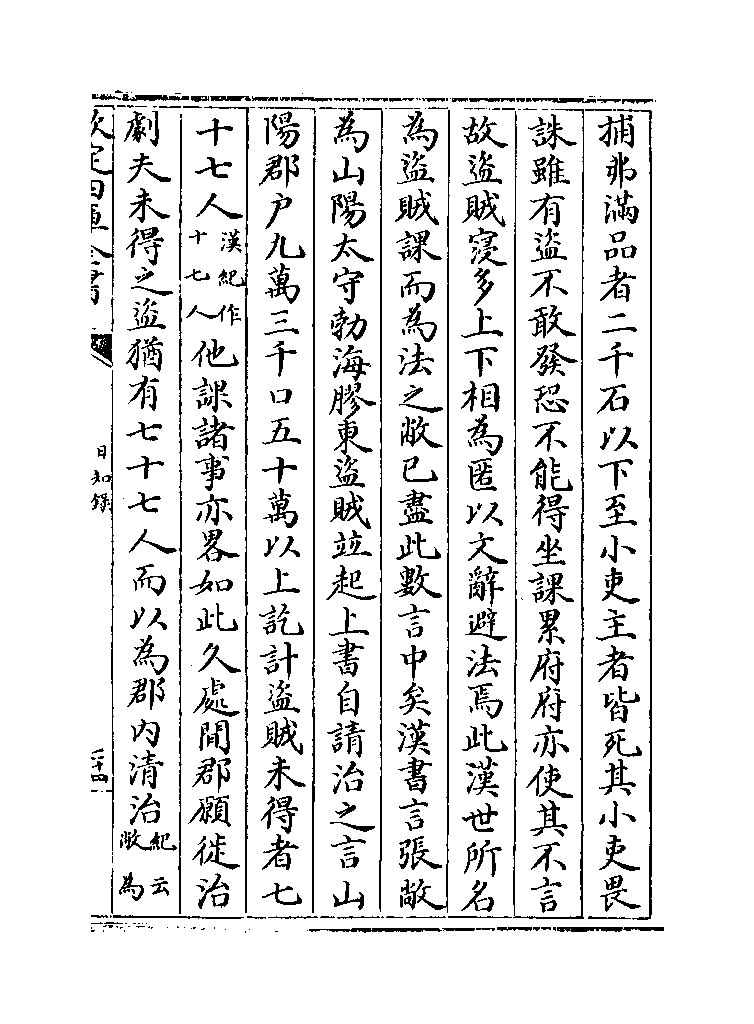 捕弗滿品者二千石以下至小吏主者皆死其小吏畏
誅雖有盜不敢發恐不能得坐課累府府亦使其不言
故盜賊寖多上下相為匿以文辭避法焉此漢世所名
為盜賊課而為法之敝已盡此數言中矣漢書言張敞
為山陽太守勃海膠東盜賊竝起上書自請治之言山
陽郡户九萬三千口五十萬以上訖計盜賊未得者七
十七人漢紀作十七人他課諸事亦畧如此久處閒郡願徙治
劇夫未得之盜猶有七十七人而以為郡内清治紀云敞為
欽定四庫全書
日知錄
二十四